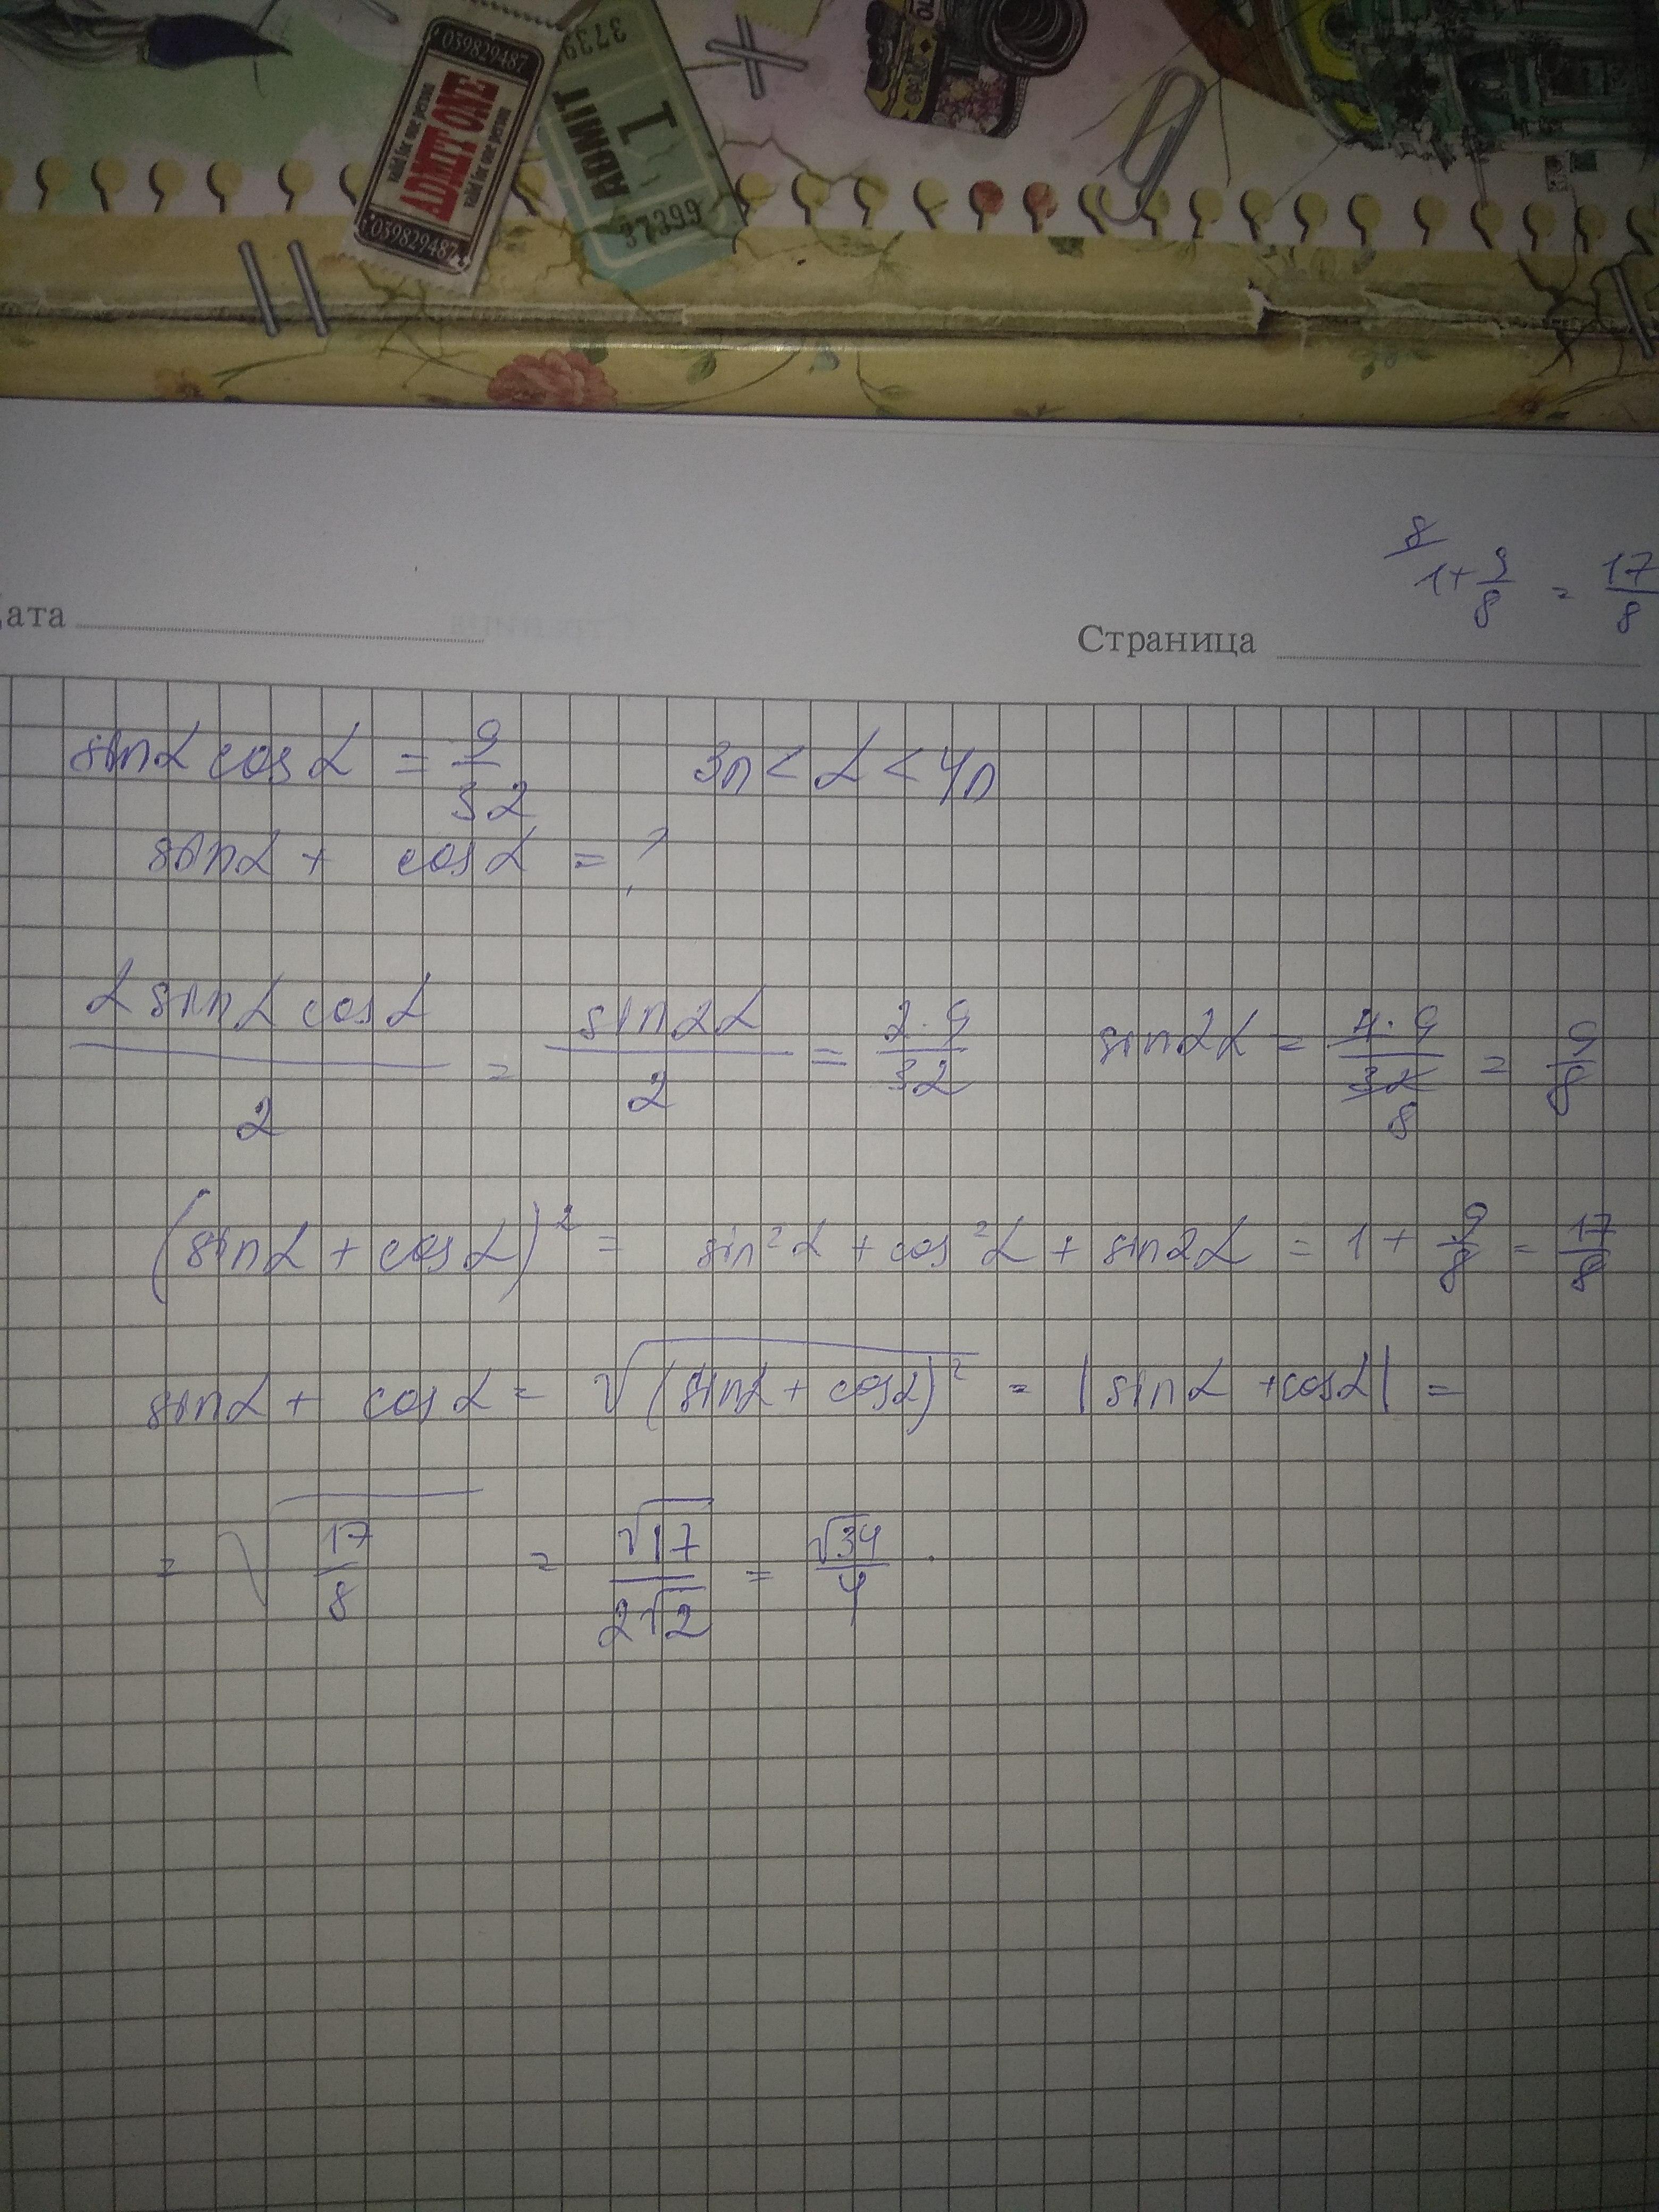 039829487
ADMIT ONE
valid for one person
valid for one person
039829487
3739
ADMIT
1
37399
8
1 + 9/8 = 17/8
Дата
Страница
sinα cosα = 9/32    3π < α < 4π
sinα + cosα = ?
2 sinα cosα / 2 = sin2α / 2 = 2·9/32    sin2α = 4·9/32 8 = 9/8
(sinα + cosα)² = sin²α + cos²α + sin2α = 1 + 9/8 = 17/8
sinα + cosα = √(sinα + cosα)² = |sinα + cosα| =
= √17/8 = √17/2√2 = √34/4 .